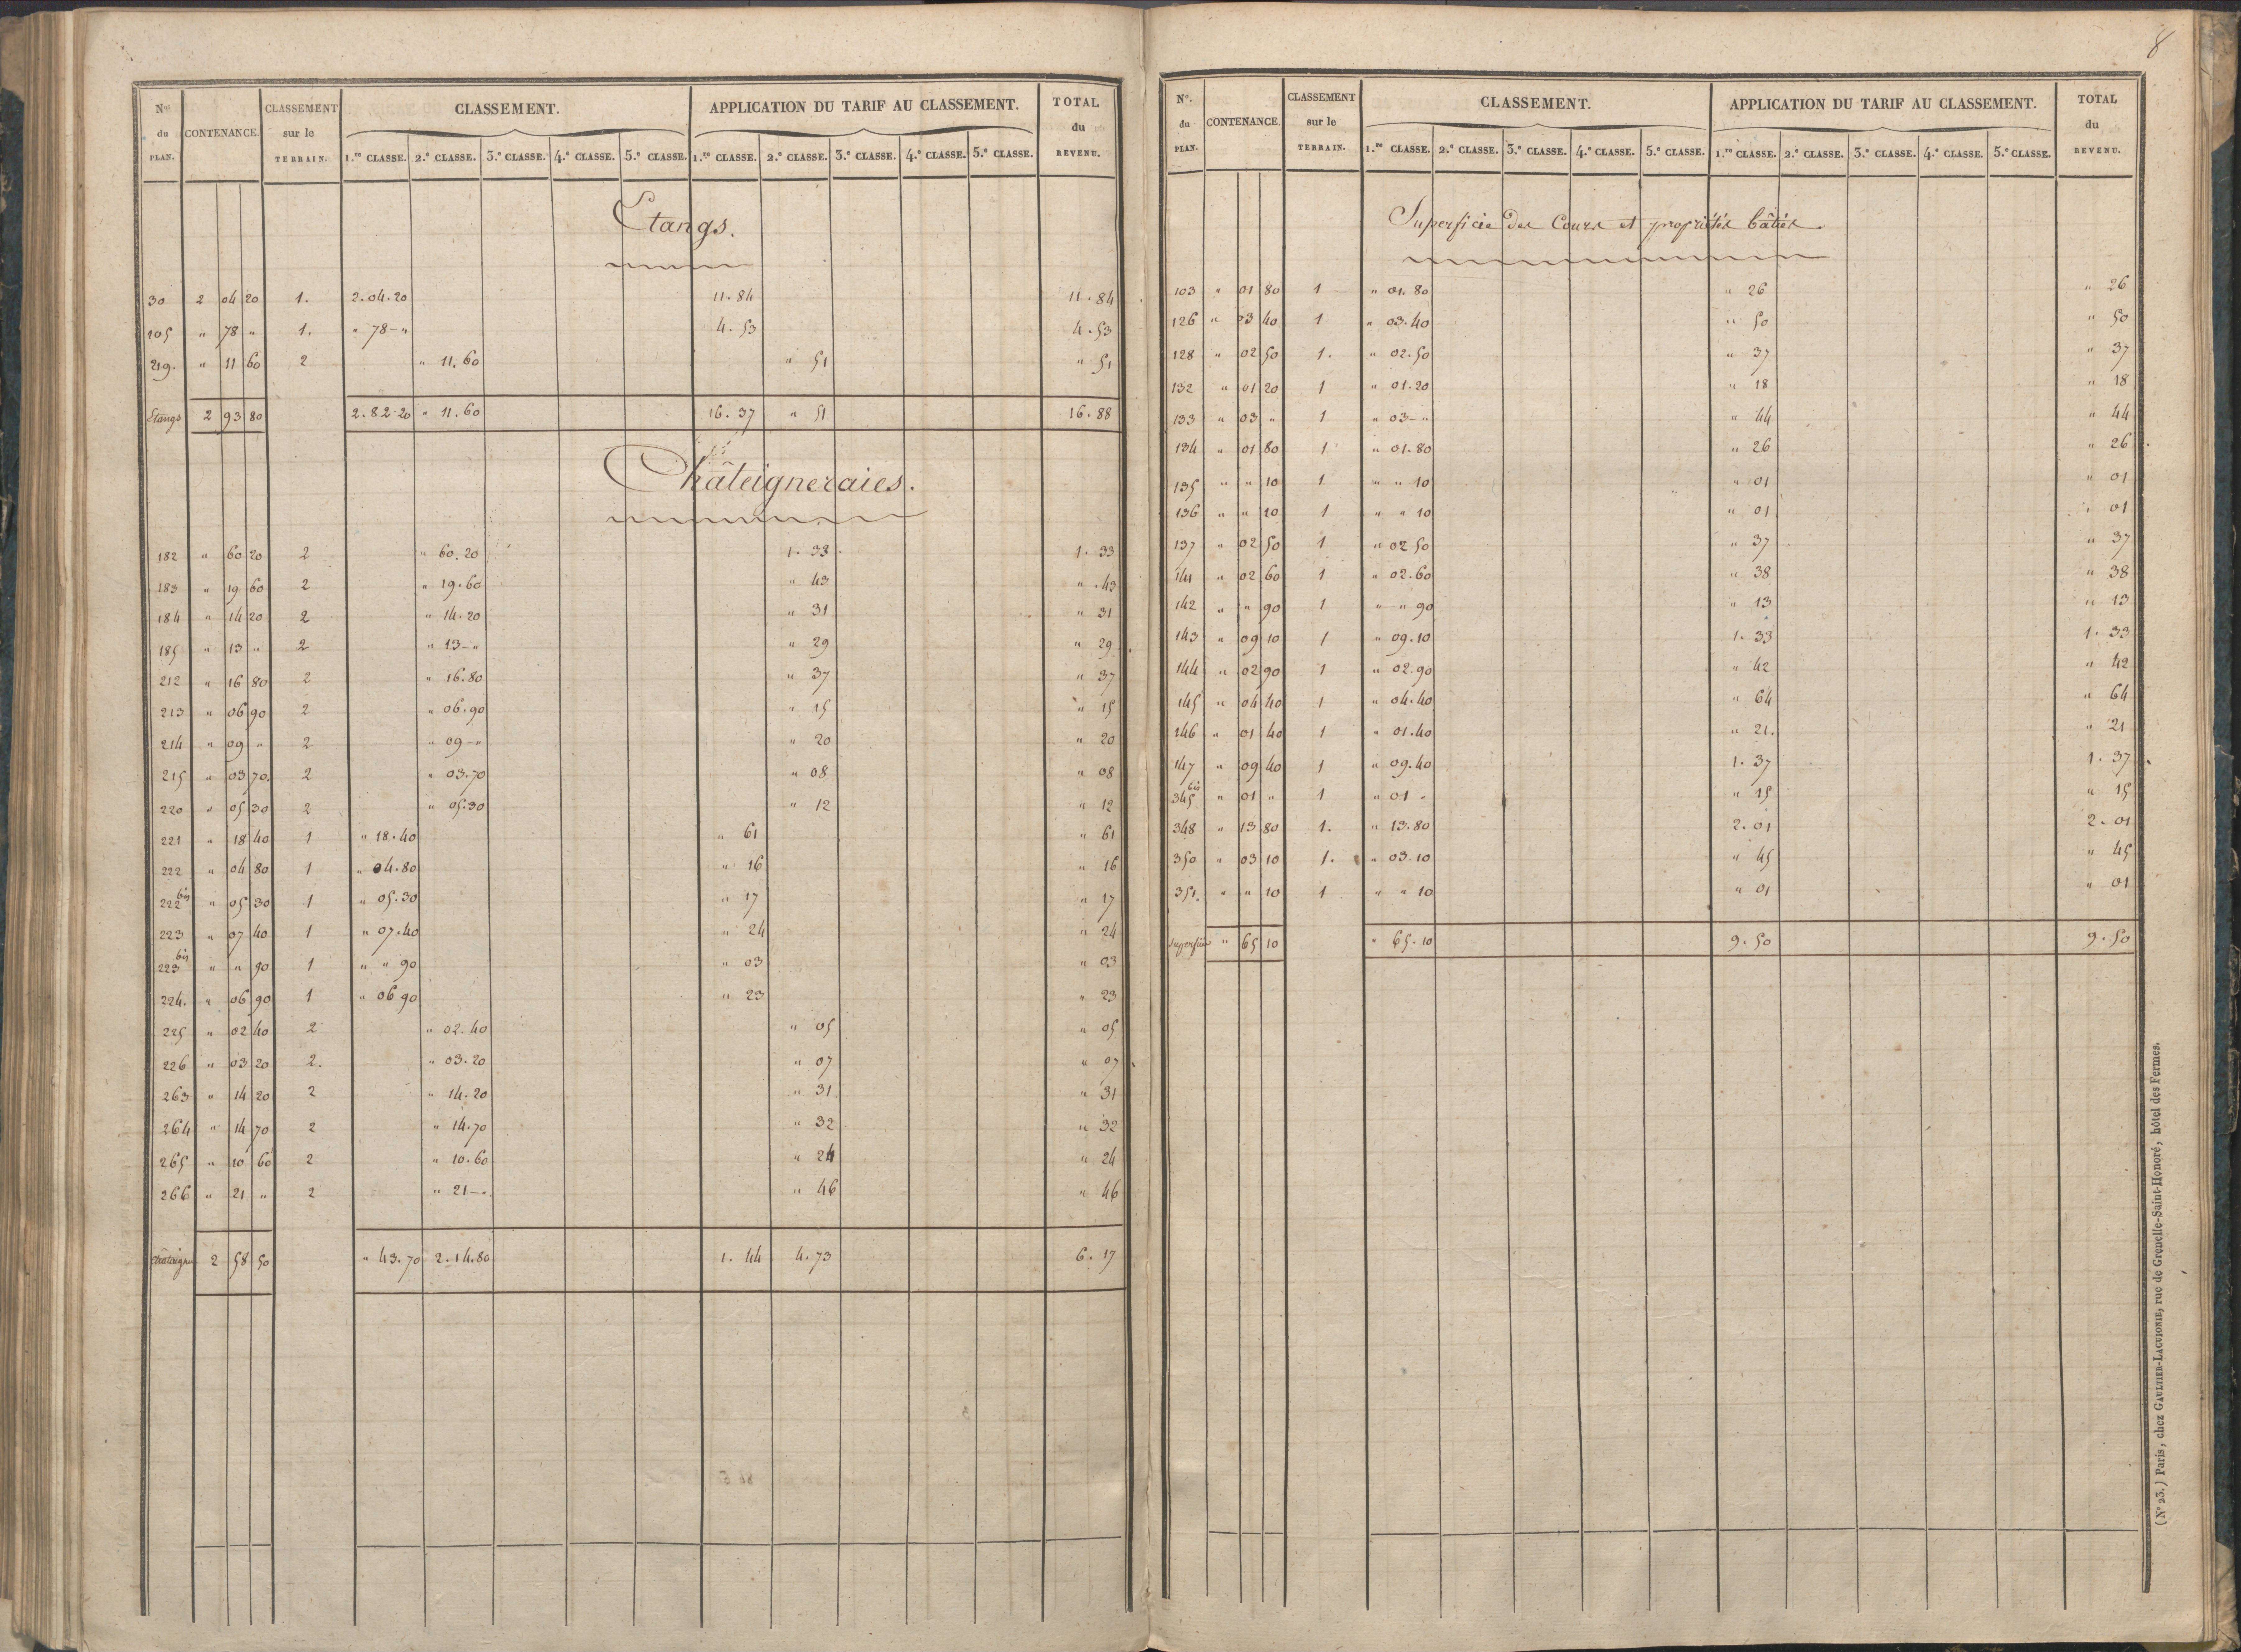 N.os du PLAN. CONTENANCE. CLASSEMENT sur le TERRAIN. CLASSEMENT. APPLICATION DU TARIF AU CLASSEMENT. TOTAL du REVENU.
1.re CLASSE. 2.e CLASSE. 3.e CLASSE. 4.e CLASSE. 5.e CLASSE. 1.re CLASSE. 2.e CLASSE. 3.e CLASSE. 4.e CLASSE. 5.e CLASSE.
Etangs.
30 2 04 20 1. 2.04.20 11.84 11.84
105 " 78 " 1. " 78-" 4.53 4.53
219. " 11 60 2 " 11.60 " 51 " 51
Etangs 2 93 80 2.82 20 " 11.60 16.37 " 51 16.88
Châteigneraies.
182 " 60 20 2 " 60.20 1.33 1.33
183 " 19 60 2 " 19.60 " 43 " 43
184 " 14 20 2 " 14.20 " 31 " 31
185 " 13 " 2 " 13-" " 29 " 29
212 " 16 80 2 " 16.80 " 37 " 37
213 " 06 90 2 " 06.90 " 15 " 15
214 " 09 " 2 " 09-" " 20 " 20
215 " 03 70. 2 " 03.70 " 08 " 08
220 " 05 30 2 " 05.30 " 12 " 12
221 " 18 40 1 " 18.40 " 61 " 61
222 " 04 80 1 " 04.80 " 16 " 16
222 bis " 05 30 1 " 05.30 " 17 " 17
223 " 07 40 1 " 07.40 " 24 " 24
223 bis " " 90 1 " " 90 " 03 " 03
224. " 06 90 1 " 06 90 " 23 " 23
225 " 02 40 2 " 02.40 " 05 " 05
226 " 03 20 2. " 03.20 " 07 " 07
263 " 14 20 2 " 14.20 " 31 " 31
264 " 14 70 2 " 14.70 " 32 " 32
265 " 10 60 2 " 10.60 " 24 " 24
266 " 21 " 2 " 21-" " 46 " 46
2 58 50 " 43.70 2.14.80 1.44 4.73 6.17
8
N.o du PLAN. CONTENANCE. CLASSEMENT sur le TERRAIN. CLASSEMENT. APPLICATION DU TARIF AU CLASSEMENT. TOTAL du REVENU.
1.re CLASSE. 2.e CLASSE. 3.e CLASSE. 4.e CLASSE. 5.e CLASSE. 1.re CLASSE. 2.e CLASSE. 3.e CLASSE. 4.e CLASSE. 5.e CLASSE.
Superficie Des Cours et propriétés bâties.
103 " 01 80 1 " 01.80 " 26 " 26
126 " 03 40 1 " 03.40 " 50 " 50
128 " 02 50 1. " 02.50 " 37 " 37
132 " 01 20 1 " 01.20 " 18 " 18
133 " 03 " 1 " 03-" " 44 " 44
134 " 01 80 1 " 01.80 " 26 " 26
135 " " 10 1 " " 10 " 01 " 01
136 " " 10 1 " " 10 " 01 " 01
137 " 02 50 1 " 02 50 " 37 " 37
141 " 02 60 1 " 02.60 " 38 " 38
142 " " 90 1 " " 90 " 13 " 13
143 " 09 10 1 " 09.10 1.33 1.33
144 " 02 90 1 " 02.90 " 42 " 42
145 " 04 40 1 " 04.40 " 64 " 64
146 " 01 40 1 " 01.40 " 21. " 21
147 " 09 40 1 " 09.40 1.37 1.37
345 bis " 01 " 1 " 01 " " 15 " 15
348 " 13 80 1. " 13.80 2.01 2.01
350 " 03 10 1. " 03.10 " 45 " 45
351. " " 10 1 " " 10 " 01 " 01
" 65 10 " 65.10 9.50 9.50
(N° 23.) Paris, chez GAULTIER-LAGUIONIE, rue de Grenelle-Saint-Honoré, hôtel des Fermes.